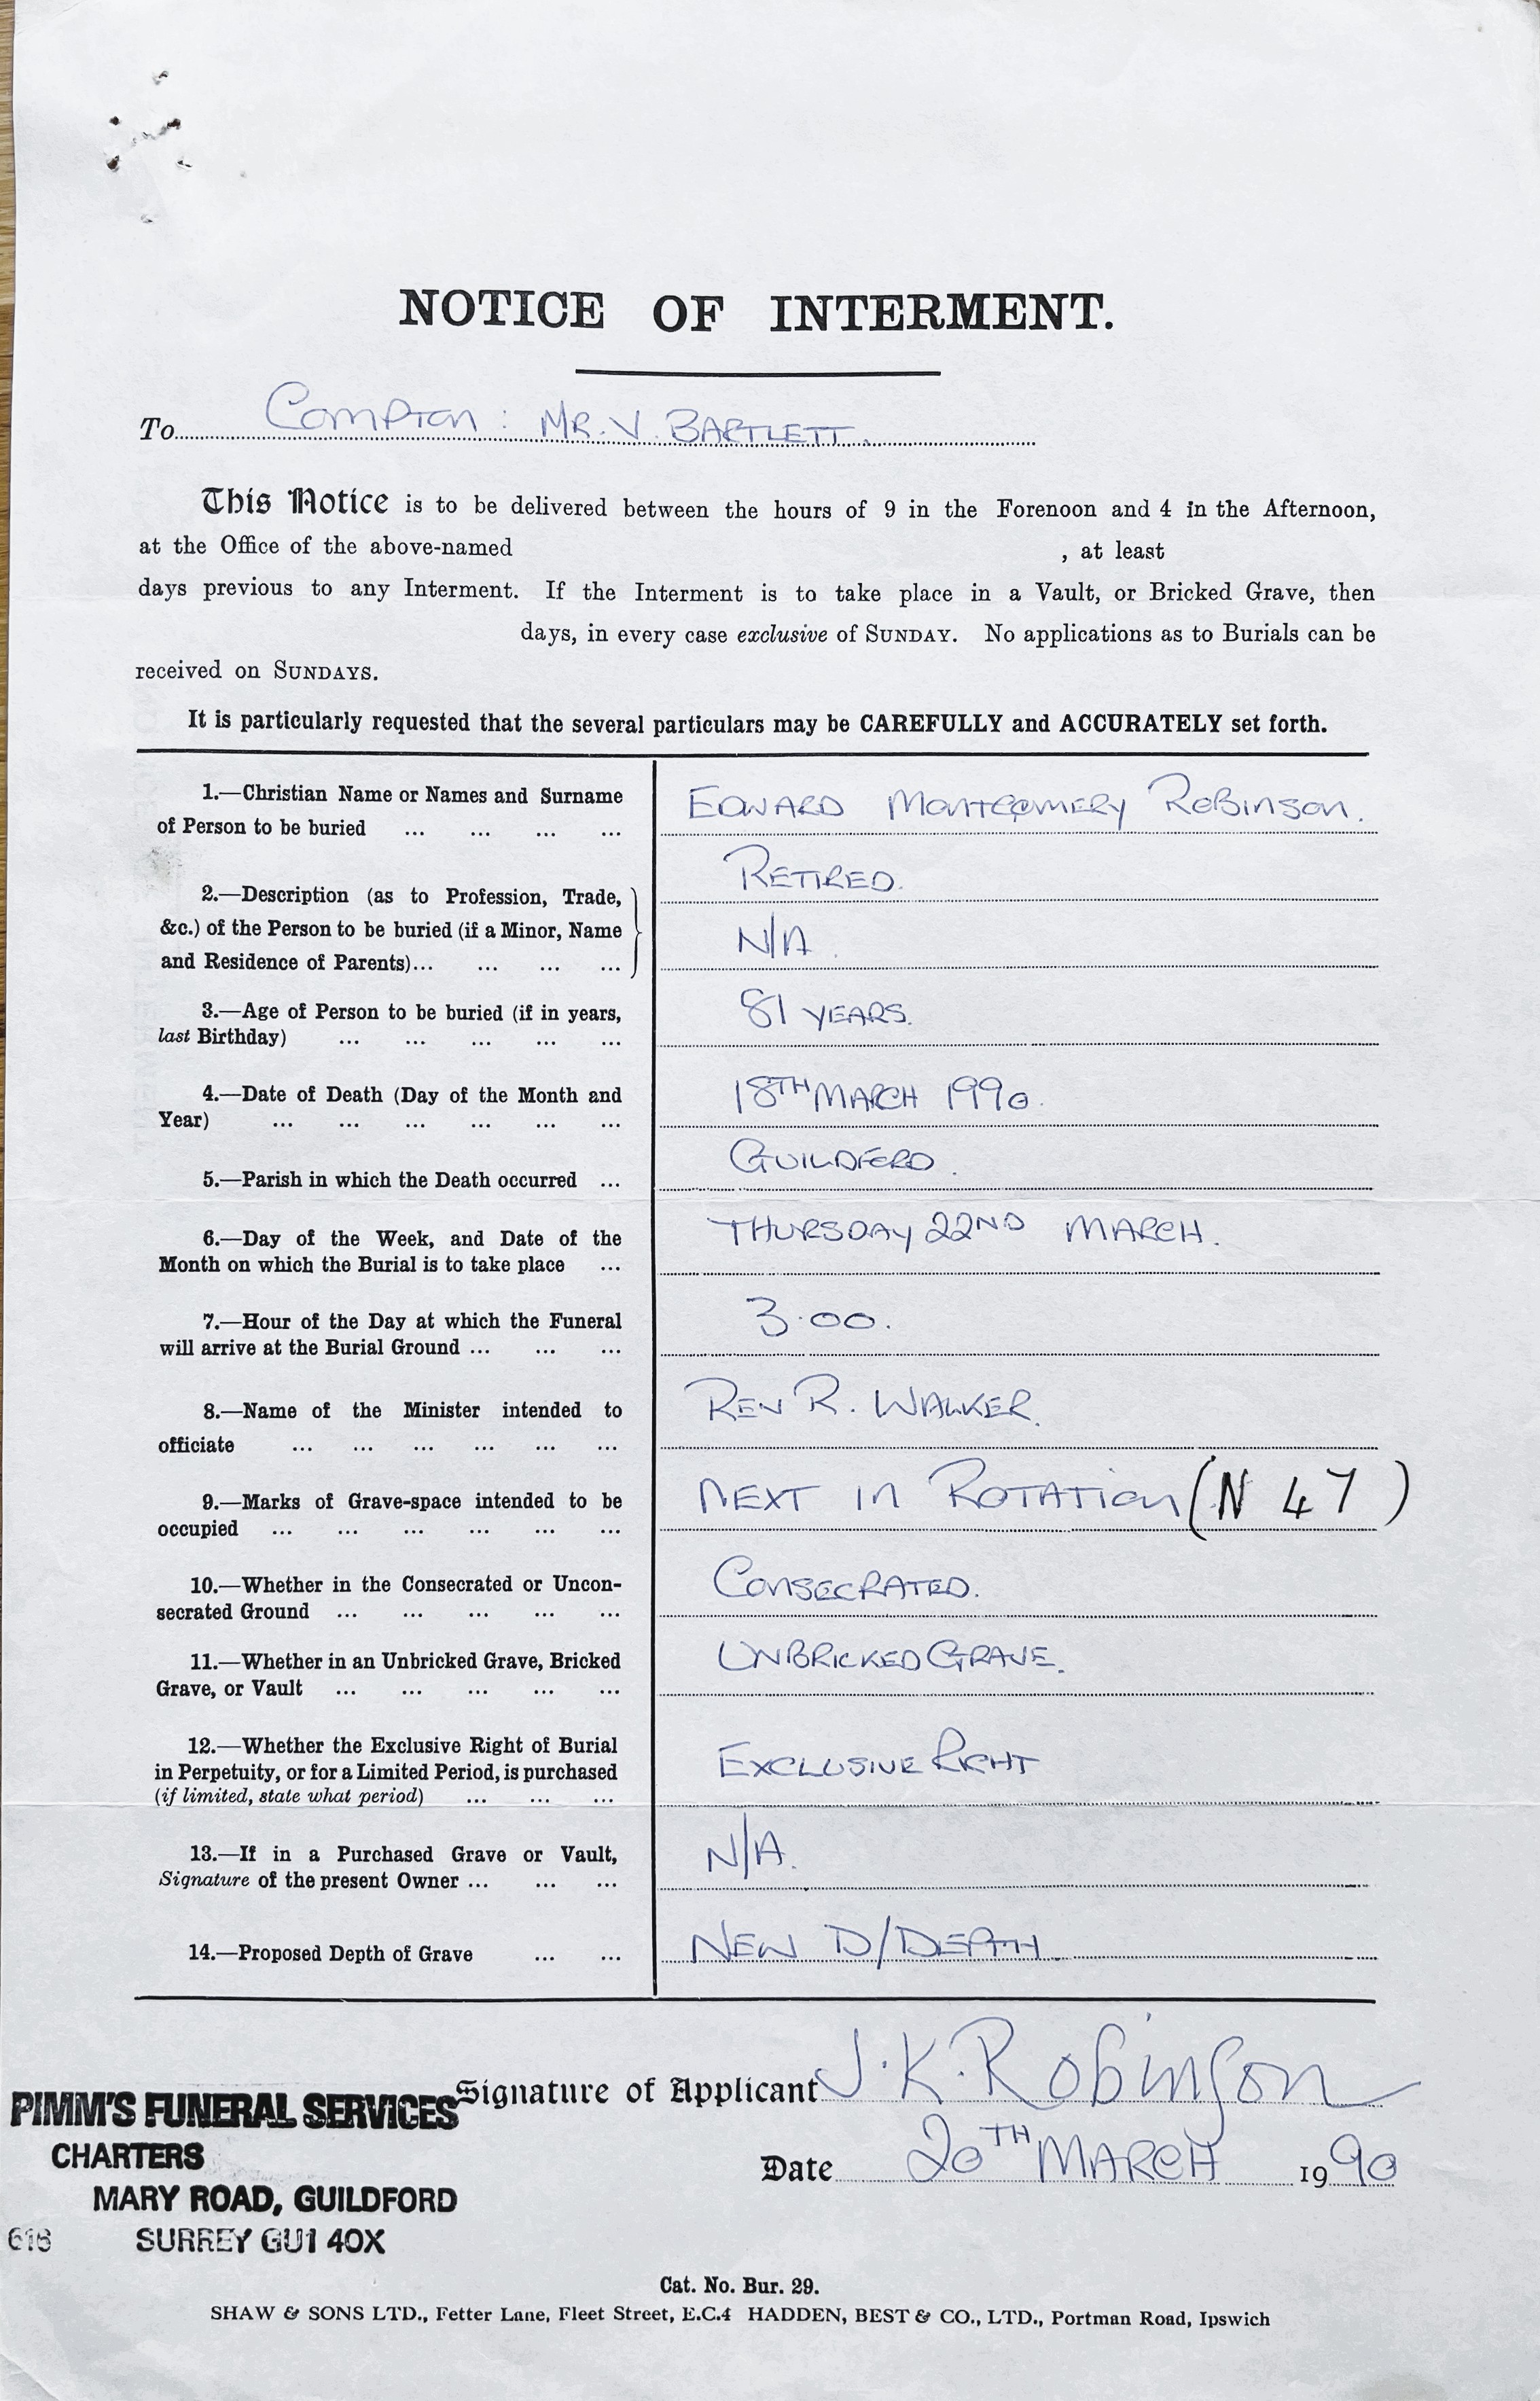 NOTICE OF INTERMENT.
To COMPTON : MR. V. BARTLETT.
This Notice is to be delivered between the hours of 9 in the Forenoon and 4 in the Afternoon,
at the Office of the above-named , at least
days previous to any Interment. If the Interment is to take place in a Vault, or Bricked Grave, then
days, in every case exclusive of SUNDAY. No applications as to Burials can be
received on SUNDAYS.
It is particularly requested that the several particulars may be CAREFULLY and ACCURATELY set forth.
1.—Christian Name or Names and Surname
of Person to be buried ... ... ... ...
EDWARD MONTGOMERY ROBINSON.
2.—Description (as to Profession, Trade,
&c.) of the Person to be buried (if a Minor, Name
and Residence of Parents)... ... ... ...
RETIRED.
N/A.
3.—Age of Person to be buried (if in years,
last Birthday) ... ... ... ... ...
81 YEARS.
4.—Date of Death (Day of the Month and
Year) ... ... ... ... ... ...
18TH MARCH 1990.
5.—Parish in which the Death occurred ...
GUILDFORD.
6.—Day of the Week, and Date of the
Month on which the Burial is to take place ...
THURSDAY 22ND MARCH.
7.—Hour of the Day at which the Funeral
will arrive at the Burial Ground ... ... ...
3.00.
8.—Name of the Minister intended to
officiate ... ... ... ... ... ...
REV R. WALKER.
9.—Marks of Grave-space intended to be
occupied ... ... ... ... ... ...
NEXT IN ROTATION (N 47)
10.—Whether in the Consecrated or Uncon-
secrated Ground ... ... ... ... ...
CONSECRATED.
11.—Whether in an Unbricked Grave, Bricked
Grave, or Vault ... ... ... ... ...
UNBRICKED GRAVE.
12.—Whether the Exclusive Right of Burial
in Perpetuity, or for a Limited Period, is purchased
(if limited, state what period) ... ... ...
EXCLUSIVE RIGHT
13.—If in a Purchased Grave or Vault,
Signature of the present Owner ... ... ...
N/A.
14.—Proposed Depth of Grave ... ...
NEW D/DEPTH.
Signature of Applicant J. K. Robinson
Date 20TH MARCH 1990
PIMM'S FUNERAL SERVICES
CHARTERS
MARY ROAD, GUILDFORD
616 SURREY GU1 4QX
Cat. No. Bur. 29.
SHAW & SONS LTD., Fetter Lane, Fleet Street, E.C.4 HADDEN, BEST & CO., LTD., Portman Road, Ipswich